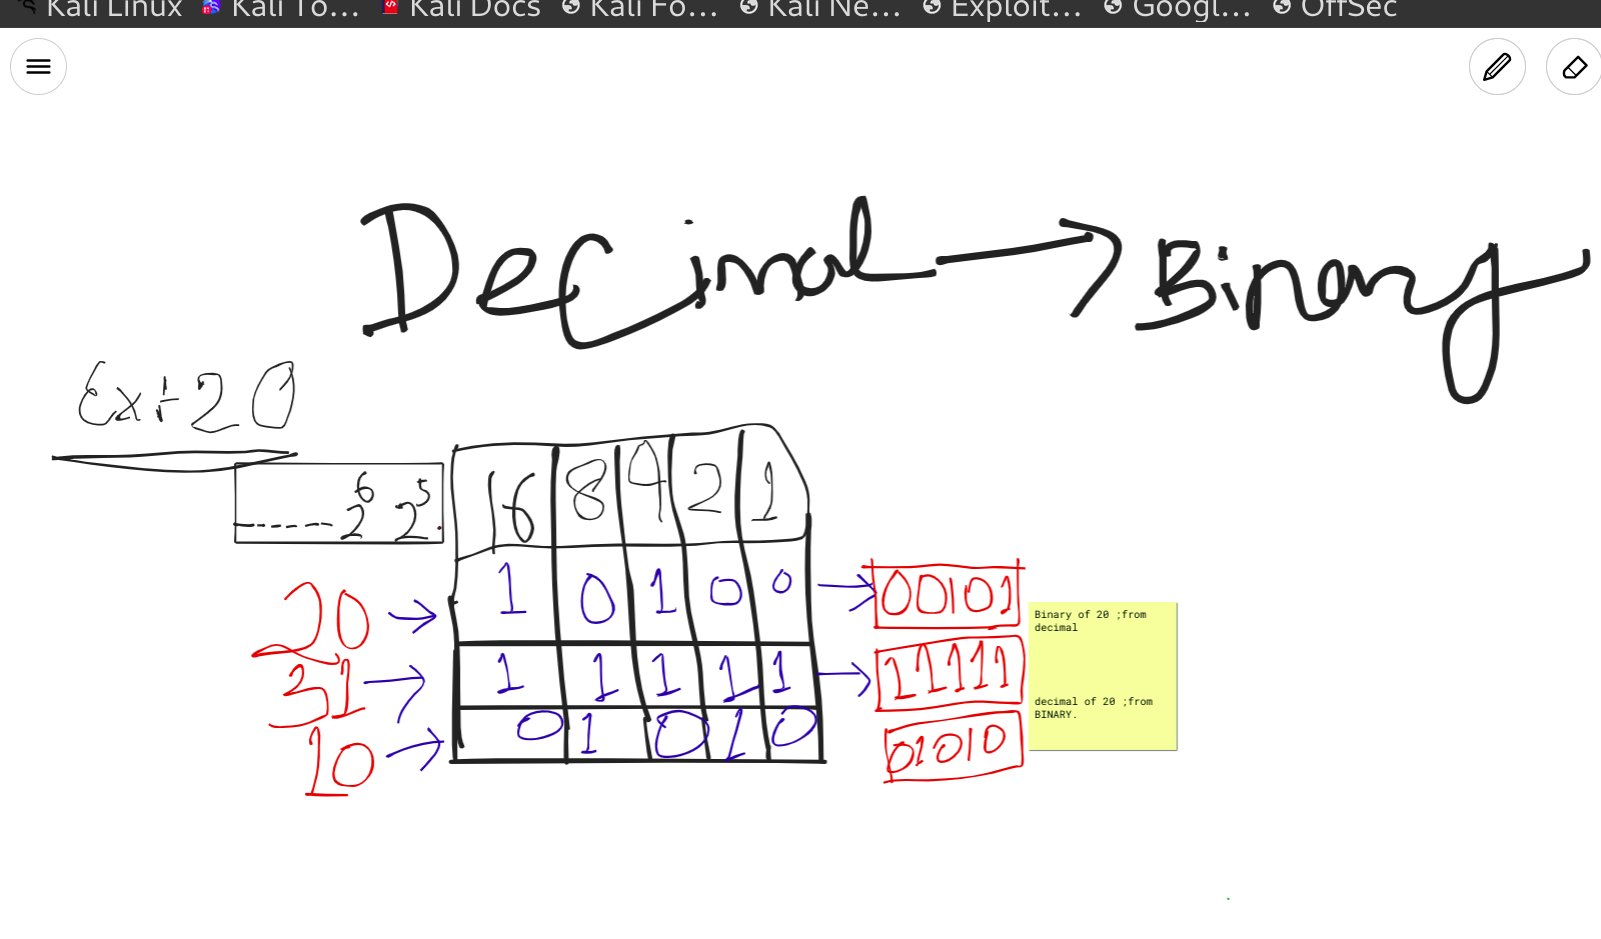 Kali Linux Kali To... Kali Docs Kali Fo... Kali Ne... Exploit... Googl... OffSec
Decimal → Binary
Ex:-20
------ 2^6 2^5 . 16 8 4 2 1
20 → 1 0 1 0 0 → 00101
31 → 1 1 1 1 1 → 11111
10 → 0 1 0 1 0 01010
Binary of 20 ;from
decimal
decimal of 20 ;from
BINARY.